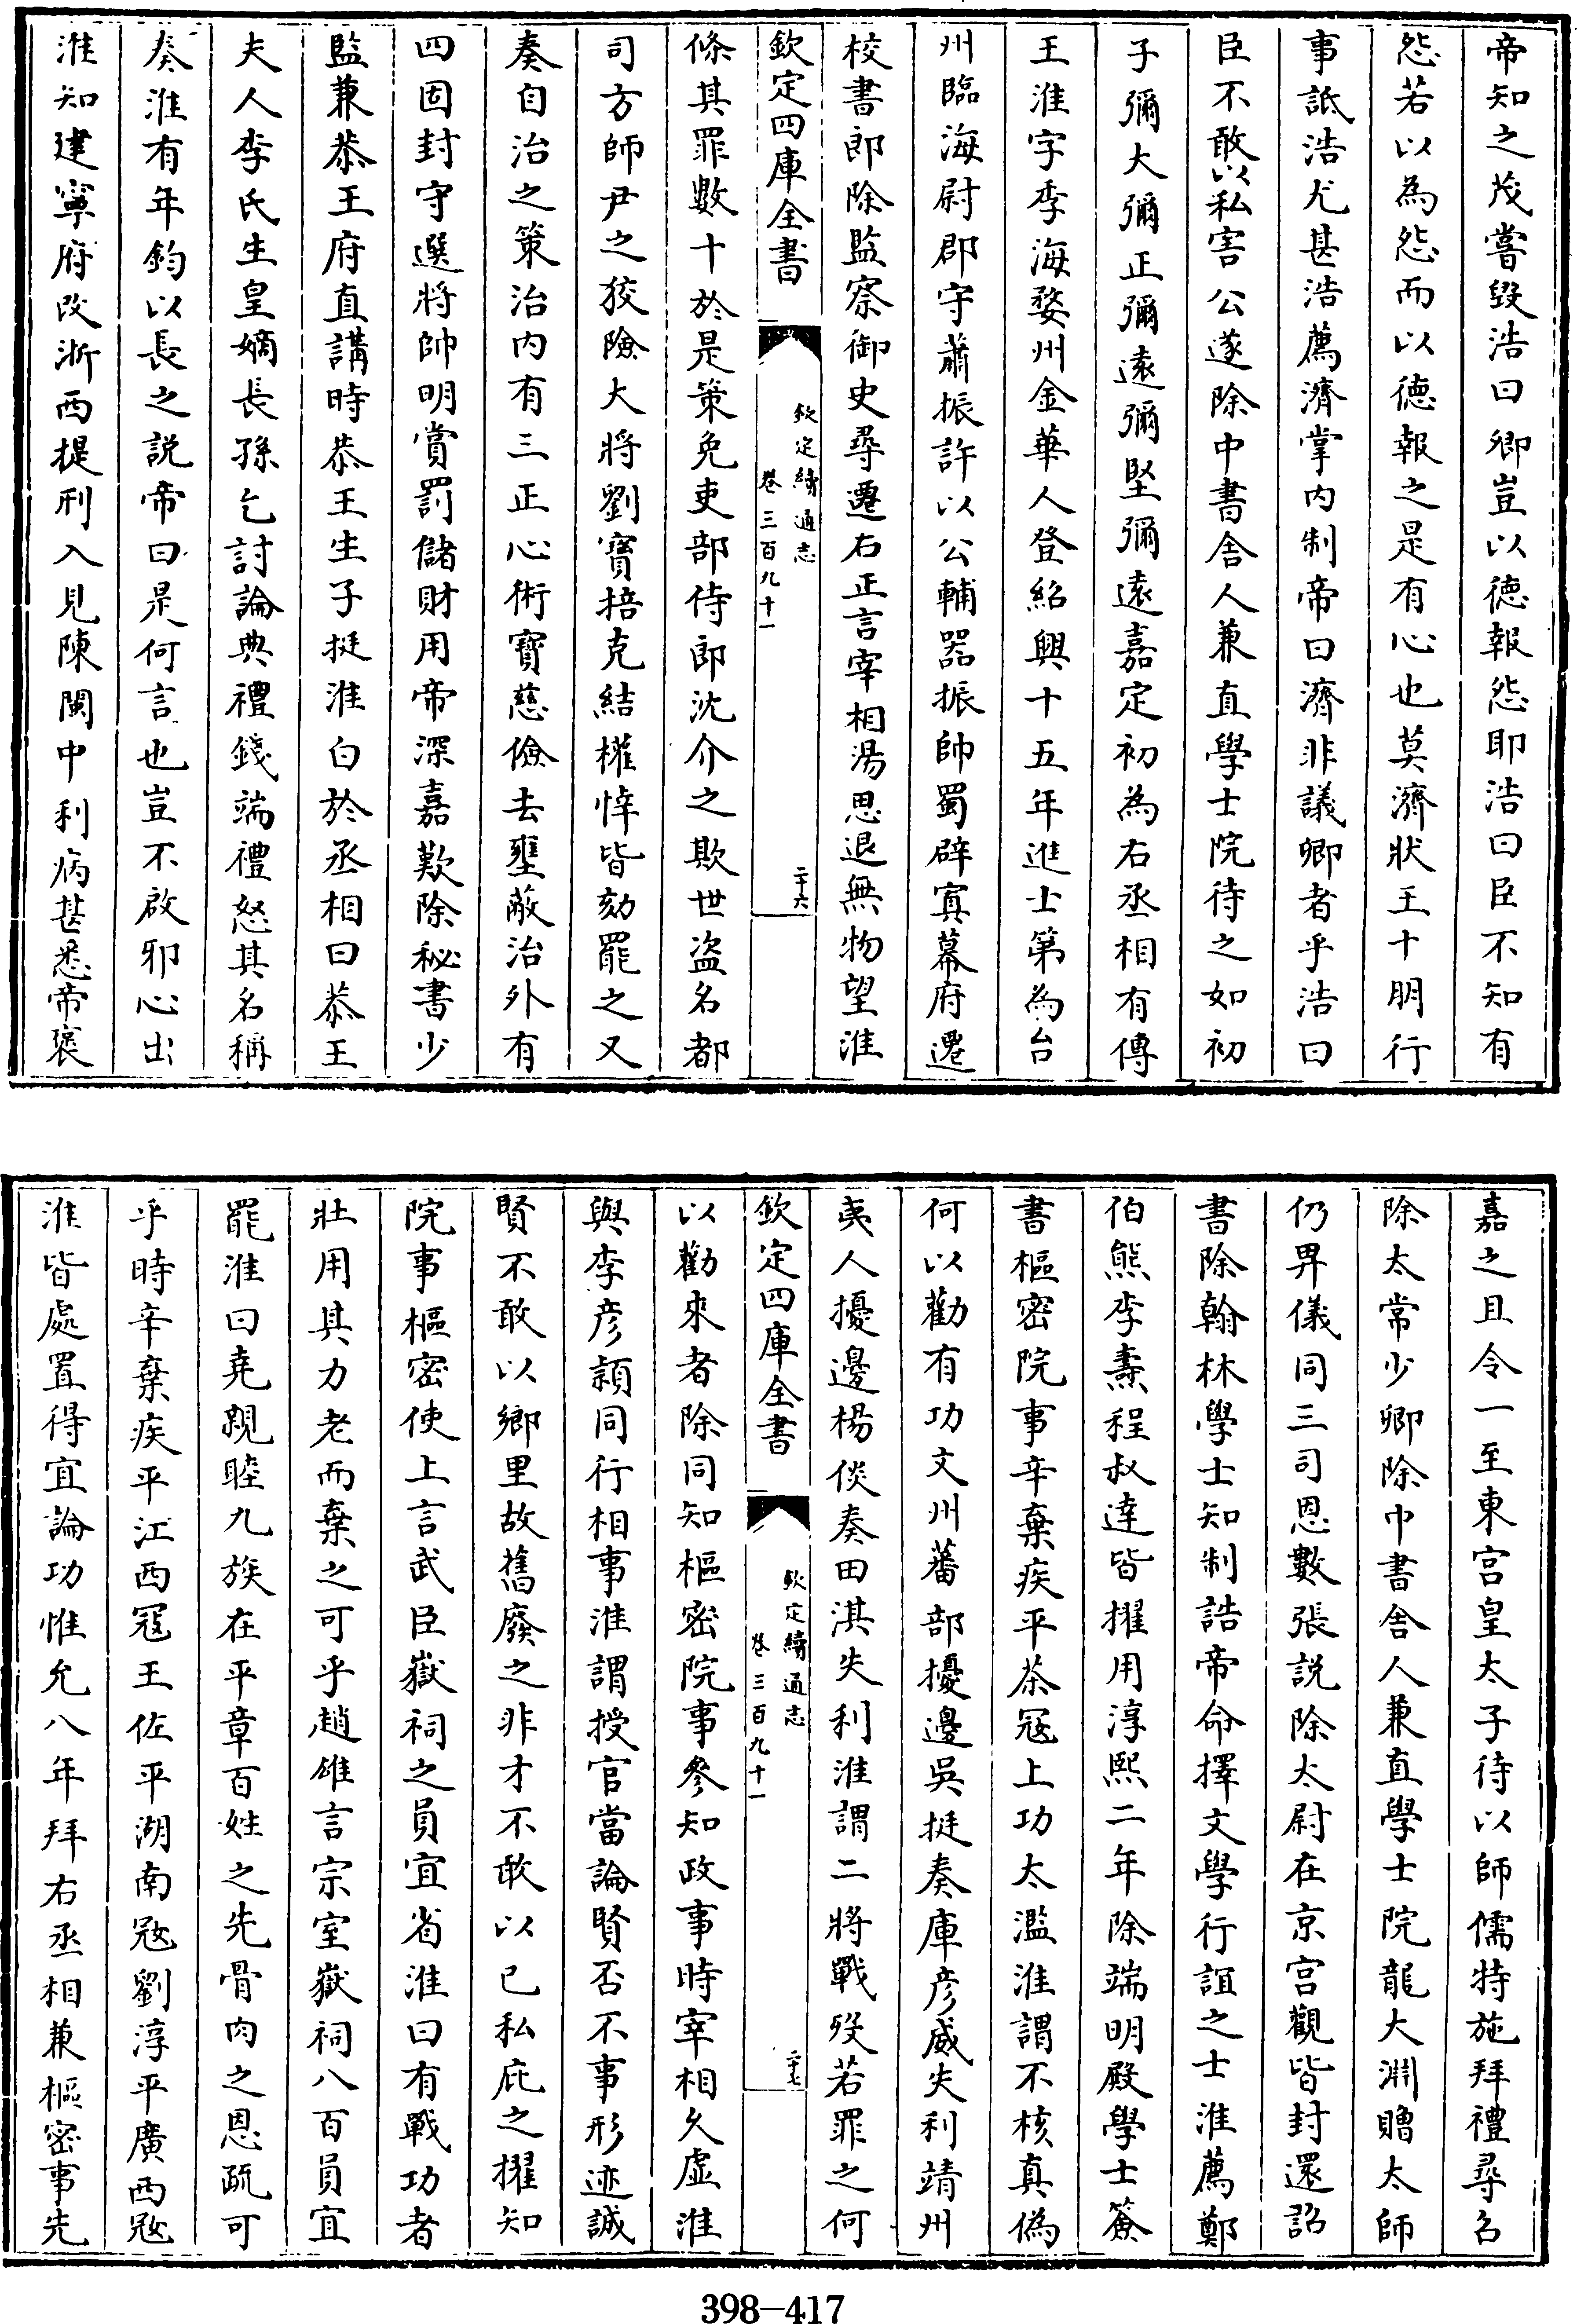 帝知之茂嘗毀浩曰卿豈以徳報怨耶浩曰臣不知有
怨若以為怨而以徳報之是有心也莫濟狀王十朋行
事詆浩尤甚浩薦濟掌内制帝曰濟非議卿者乎浩曰
臣不敢以私害公遂除中書舍人兼直學士院待之如初
子彌大彌正彌遠彌堅彌遠嘉定初為右丞相有傳
王淮字季海婺州金華人登紹興十五年進士第為台
州臨海尉郡守蕭振許以公輔器振帥蜀辟寘幕府遷
校書郎除監察御史尋遷右正言宰相湯思退無物望淮
欽定四庫全書
欽定續通志
卷三百九十一
二十六
條其罪數十於是策免吏部侍郎沈介之欺世盜名都
司方師尹之狡險大將劉寶掊克結權倖皆劾罷之又
奏自治之策治内有三正心術寶慈儉去壅蔽治外有
四固封守選將帥明賞罰儲財用帝深嘉歎除秘書少
監兼恭王府直講時恭王生子挺淮白於丞相曰恭王
夫人李氏生皇嫡長孫乞討論典禮錢端禮怒其名稱
奏淮有年鈞以長之説帝曰是何言也豈不啟邪心出
淮知建寧府改浙西提刑入見陳閩中利病甚悉帝褒
嘉之且令一至東宮皇太子待以師儒特施拜禮尋召
除太常少卿除中書舍人兼直學士院龍大淵贈太師
仍畀儀同三司恩數張説除太尉在京宮觀皆封還詔
書除翰林學士知制誥帝命擇文學行誼之士淮薦鄭
伯熊李燾程叔達皆擢用淳熙二年除端明殿學士簽
書樞密院事辛棄疾平茶冦上功太濫淮謂不核真偽
何以勸有功文州蕃部擾邊吳挺奏庫彦威失利靖州
夷人擾邊楊倓奏田淇失利淮謂二將戰歿若罪之何
欽定四庫全書
欽定續通志
卷三百九十一
二十七
以勸來者除同知樞密院事參知政事時宰相久虛淮
與李彦頴同行相事淮謂授官當論賢否不事形迹誠
賢不敢以鄉里故舊廢之非才不敢以已私庇之擢知
院事樞密使上言武臣嶽祠之員宜省淮曰有戰功者
壯用其力老而棄之可乎趙雄言宗室嶽祠八百員宜
罷淮曰堯親睦九族在平章百姓之先骨肉之恩疏可
乎時辛棄疾平江西冦王佐平湖南冦劉淳平廣西冦
淮皆處置得宜論功惟允八年拜右丞相兼樞密事先
398—417